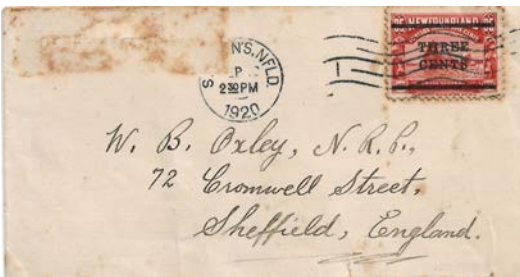 35 NEWFOUNDLAND 35
THREE
CENTS
N'S, NFLD.
2 30 PM
1920
W. B. Oxley, N.R.P.,
72 Cromwell Street,
Sheffield, England.